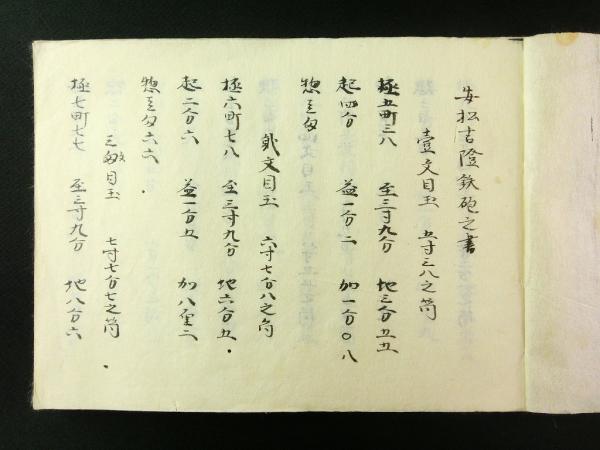 安松吉隆鉄砲之書
壹文目玉 五寸三八之筒
極五町三八 至三寸九分 地三分五五
起四分 益一分二 加一分〇八
惣王匁
弐文目玉 六寸七分八之筒
極六町七八 至三寸九分 地六分五
起二分六 益一分五 加八里二
惣王匁六六
三文目玉 七寸七分七之筒
極七町七七 至三寸九分 地八分六